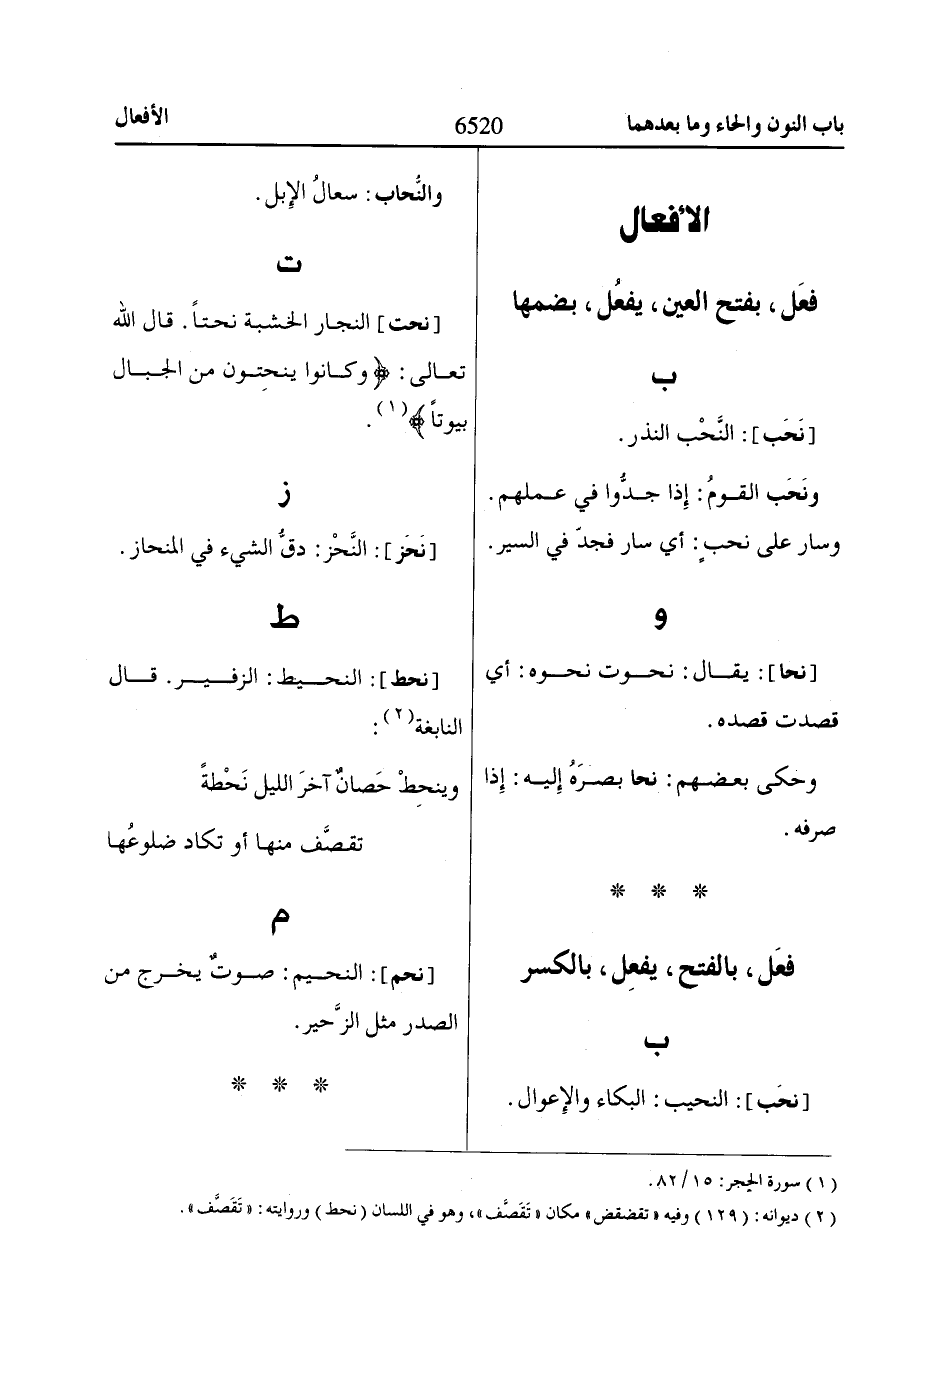 باب النون والحاء وما بعدهما
6520
الأفعال
الأفعال
فعَل، بفتح العين، يفعُل، بضمها
ب
[نَحَب]: النَّحْب النذر.
ونَحَب القومُ: إذا جدُّوا في عملهم.
وسار على نحبٍ: أي سار فجدّ في السير.
و
[نحا]: يقال: نحوت نحوه: أي
قصدت قصده.
وحكى بعضهم: نحا بصرَهُ إليه: إذا
صرفه.
* * *
فعَل، بالفتح، يفعِل، بالكسر
ب
[نحَب]: النحيب: البكاء والإعوال.
والنُّحاب: سعالُ الإبل.
ت
[نحت] النجار الخشبة نحتاً. قال الله
تعالى: ﴿وكانوا ينحِتون من الجبال
بيوتاً﴾(١).
ز
[نَحَز]: النَّحْز: دقُّ الشيء في المنحاز.
ط
[نحط]: النحيط: الزفير. قال
النابغة(٢):
وينحِطْ حَصانٌ آخرَ الليل نَحْطةً
تقصَّف منها أو تكاد ضلوعُها
م
[نحم]: النحيم: صوتٌ يخرج من
الصدر مثل الزَّحير.
* * *
(١) سورة الحِجر: ١٥/ ٨٢.
(٢) ديوانه: (١٢٩) وفيه «تقضقض» مكان «تَقَصَّف»، وهو في اللسان (نحط) وروايته: «تَقَصَّف».